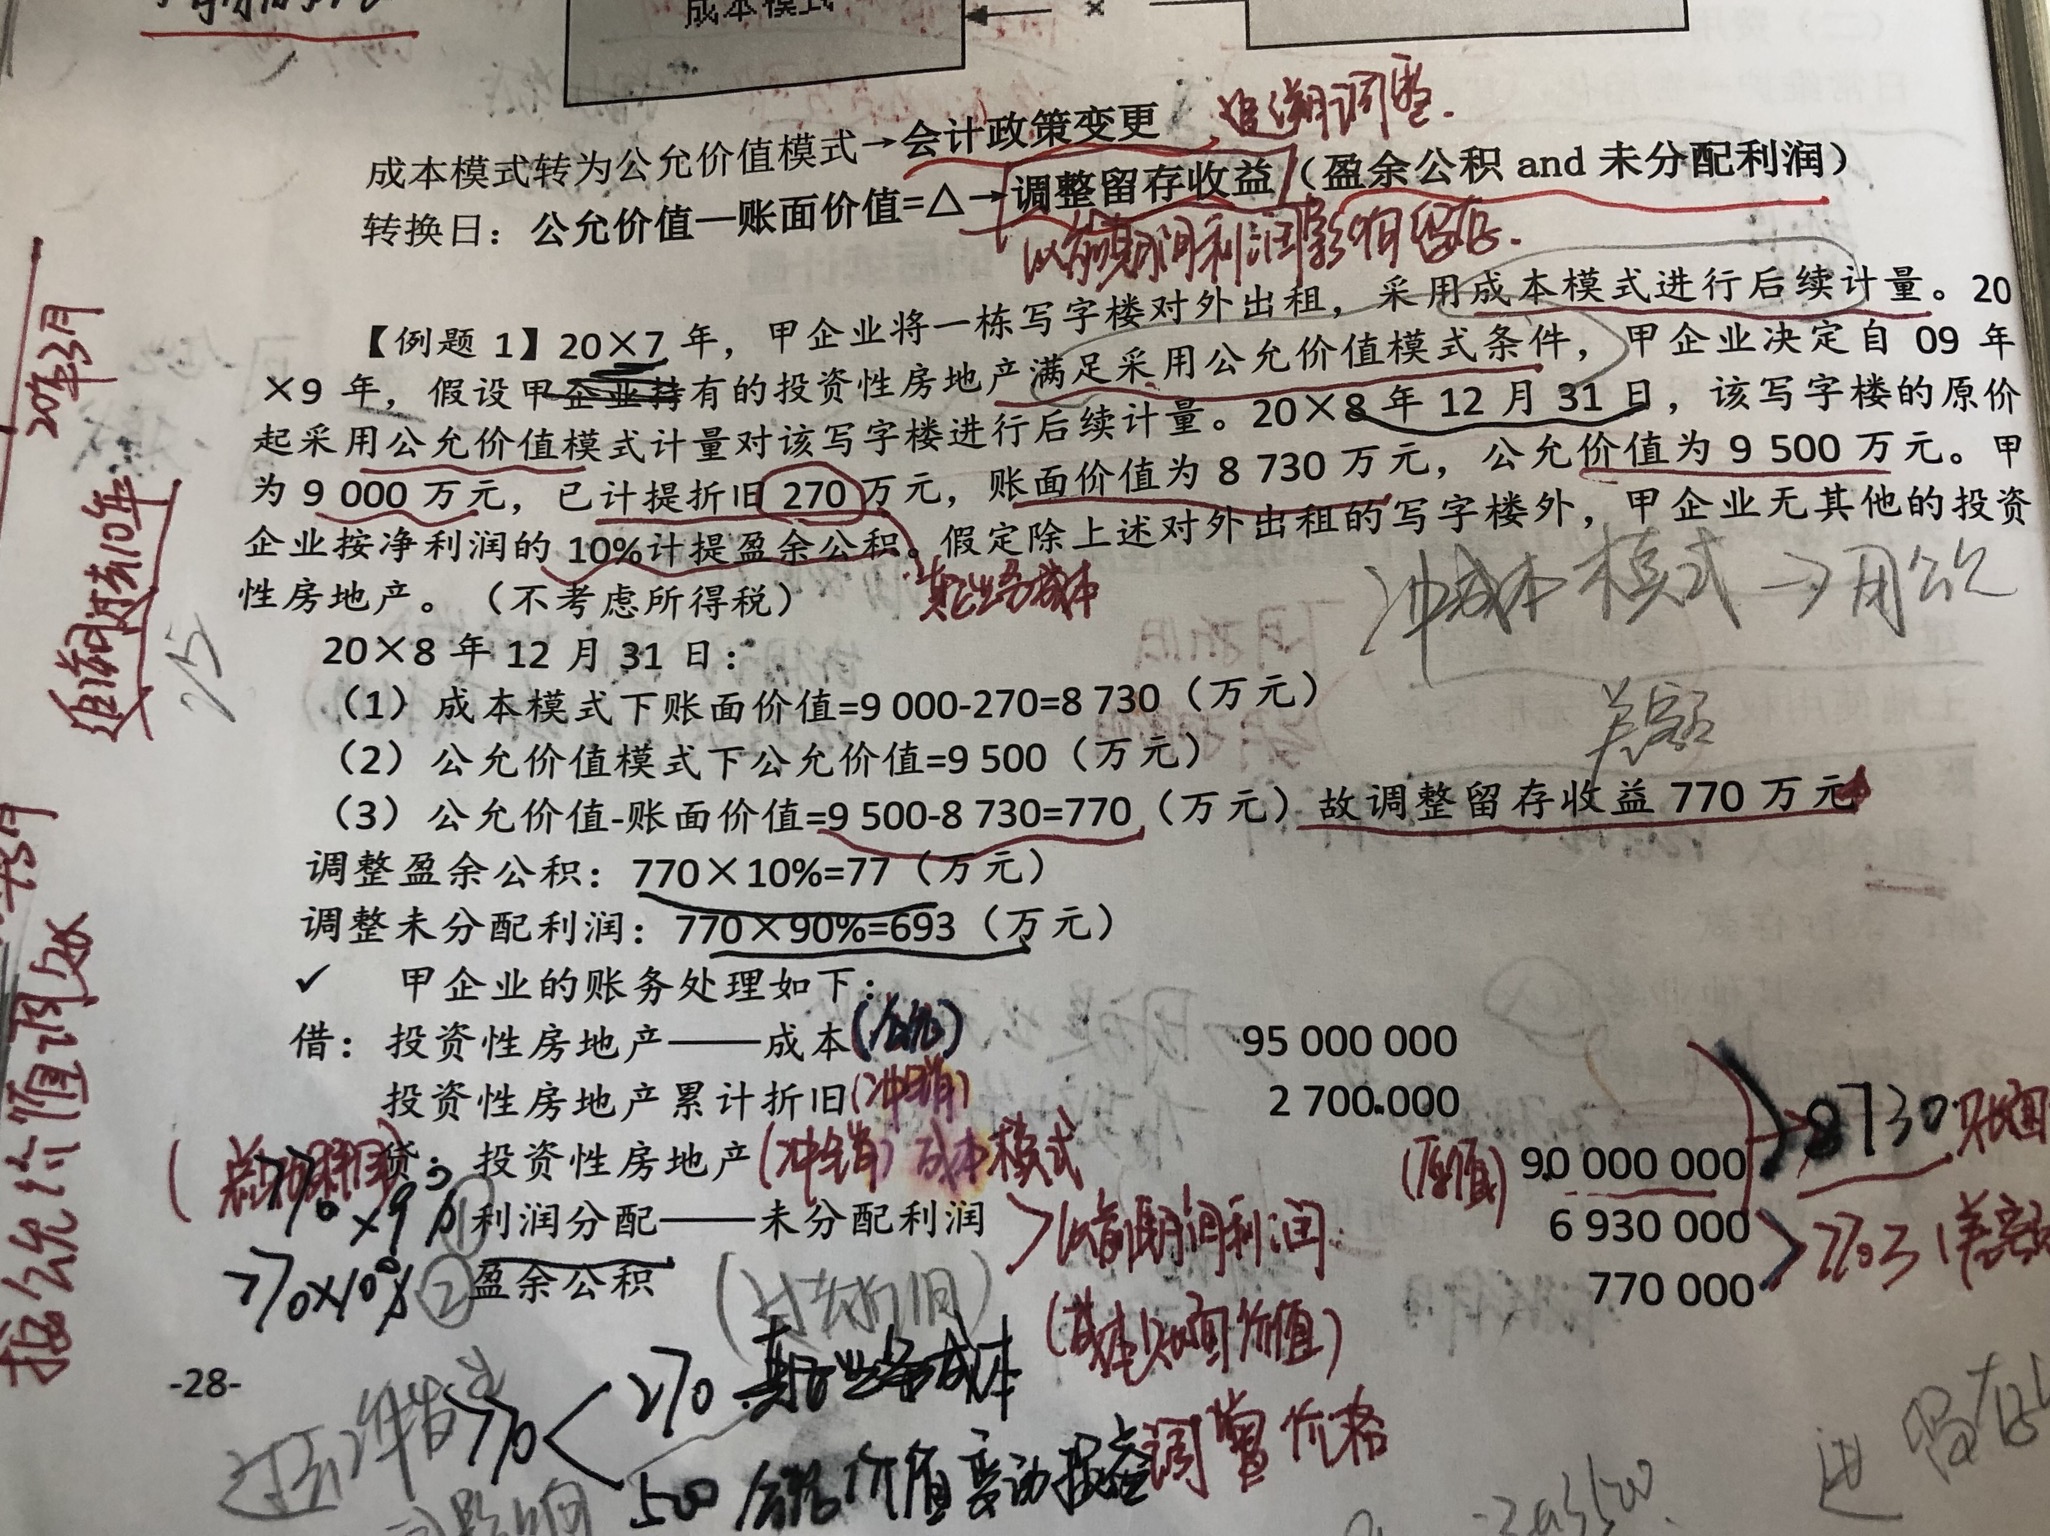 成本模式
×
成本模式转为公允价值模式→会计政策变更 追溯调整.
转换日：公允价值—账面价值=△→调整留存收益（盈余公积 and 未分配利润）
以前期间利润影响留存.
【例题 1】20×7 年，甲企业将一栋写字楼对外出租，采用成本模式进行后续计量。20
×9 年，假设甲企业持有的投资性房地产满足采用公允价值模式条件，甲企业决定自 09 年
起采用公允价值模式计量对该写字楼进行后续计量。20×8 年 12 月 31 日，该写字楼的原价
为 9 000 万元，已计提折旧 270 万元，账面价值为 8 730 万元，公允价值为 9 500 万元。甲
企业按净利润的 10%计提盈余公积。假定除上述对外出租的写字楼外，甲企业无其他的投资
性房地产。（不考虑所得税）
其他业务成本
冲成本模式→用公允
20×8 年 12 月 31 日：
（1）成本模式下账面价值=9 000-270=8 730（万元）
（2）公允价值模式下公允价值=9 500（万元）
差额
（3）公允价值-账面价值=9 500-8 730=770（万元）故调整留存收益 770 万元
调整盈余公积：770×10%=77（万元）
调整未分配利润：770×90%=693（万元）
✓ 甲企业的账务处理如下：
借：投资性房地产——成本(公允) 95 000 000
投资性房地产累计折旧(冲销) 2 700 000
贷：投资性房地产(冲销)成本模式 (原值) 90 000 000
8730 账面
①利润分配——未分配利润 >以前期间利润 6 930 000
②盈余公积 770 000
770×10%
(过去折旧)
(成本账面价值)
770 < 270 其他业务成本
500 公允价值变动损益 调整价格
-28-
租赁期为10年
按公允价值调